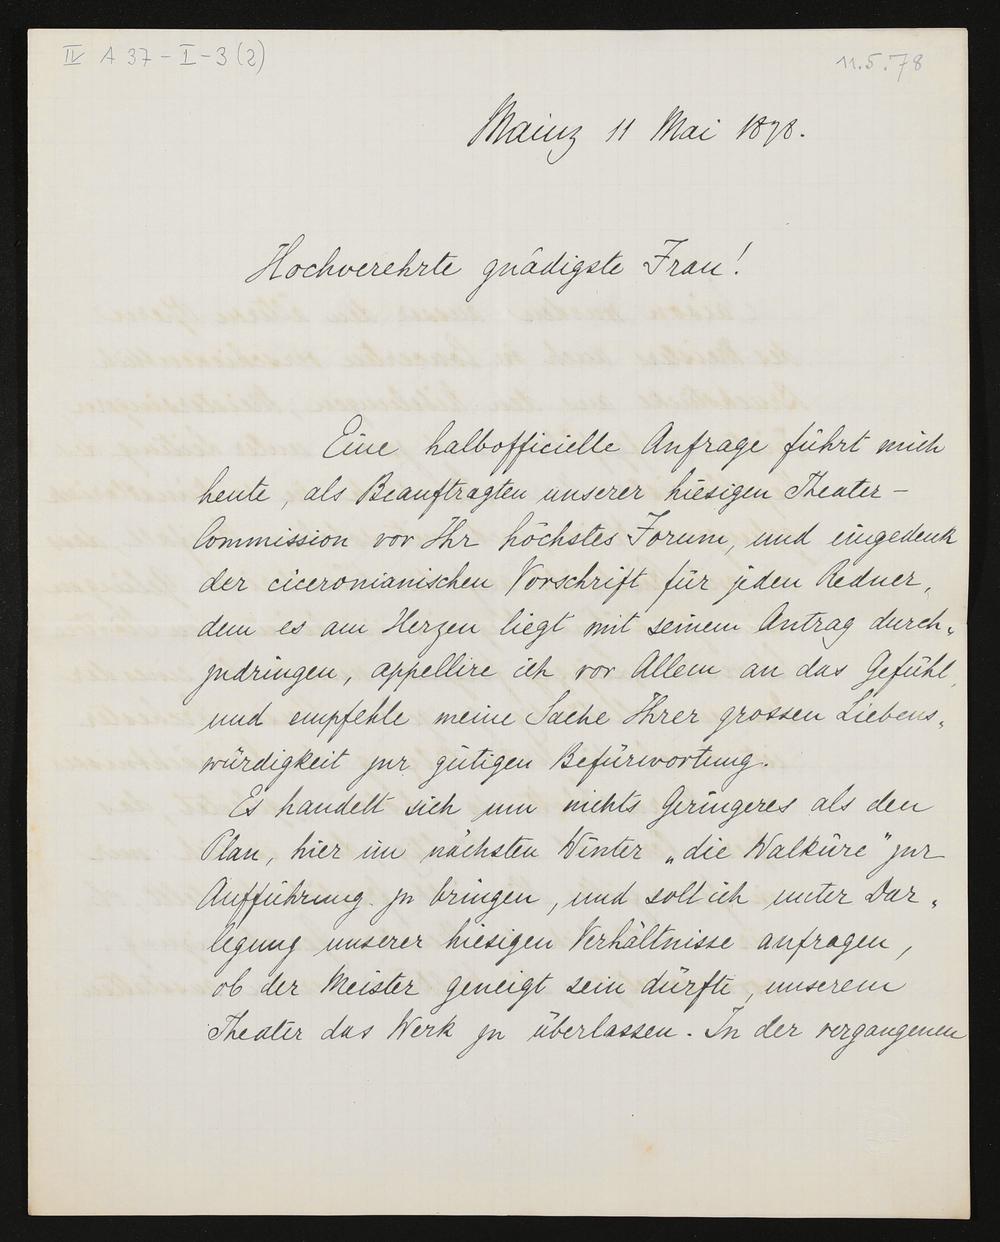 IV A 37 - I - 3 (2)
11.5.78
Mainz 11 Mai 1878.
Hochverehrte gnädigste Frau!
Eine halbofficielle Anfrage führt mich
heute, als Beauftragten unserer hiesigen Theater-
Commission vor Ihr höchstes Forum, und eingedenk
der ciceronianischen Vorschrift für jeden Redner,
dem es am Herzen liegt mit seinem Antrag durch-
zudringen, appellire ich vor Allem an das Gefühl,
und empfehle meine Sache Ihrer grossen Liebens-
würdigkeit zur gütigen Befürwortung.
Es handelt sich um nichts Geringeres als den
Plan, hier im nächsten Winter „die Walküre" zur
Aufführung zu bringen, und soll ich unter Dar-
legung unserer hiesigen Verhältnisse anfragen,
ob der Meister geneigt sein dürfte, unserem
Theater das Werk zu überlassen. In der vergangenen